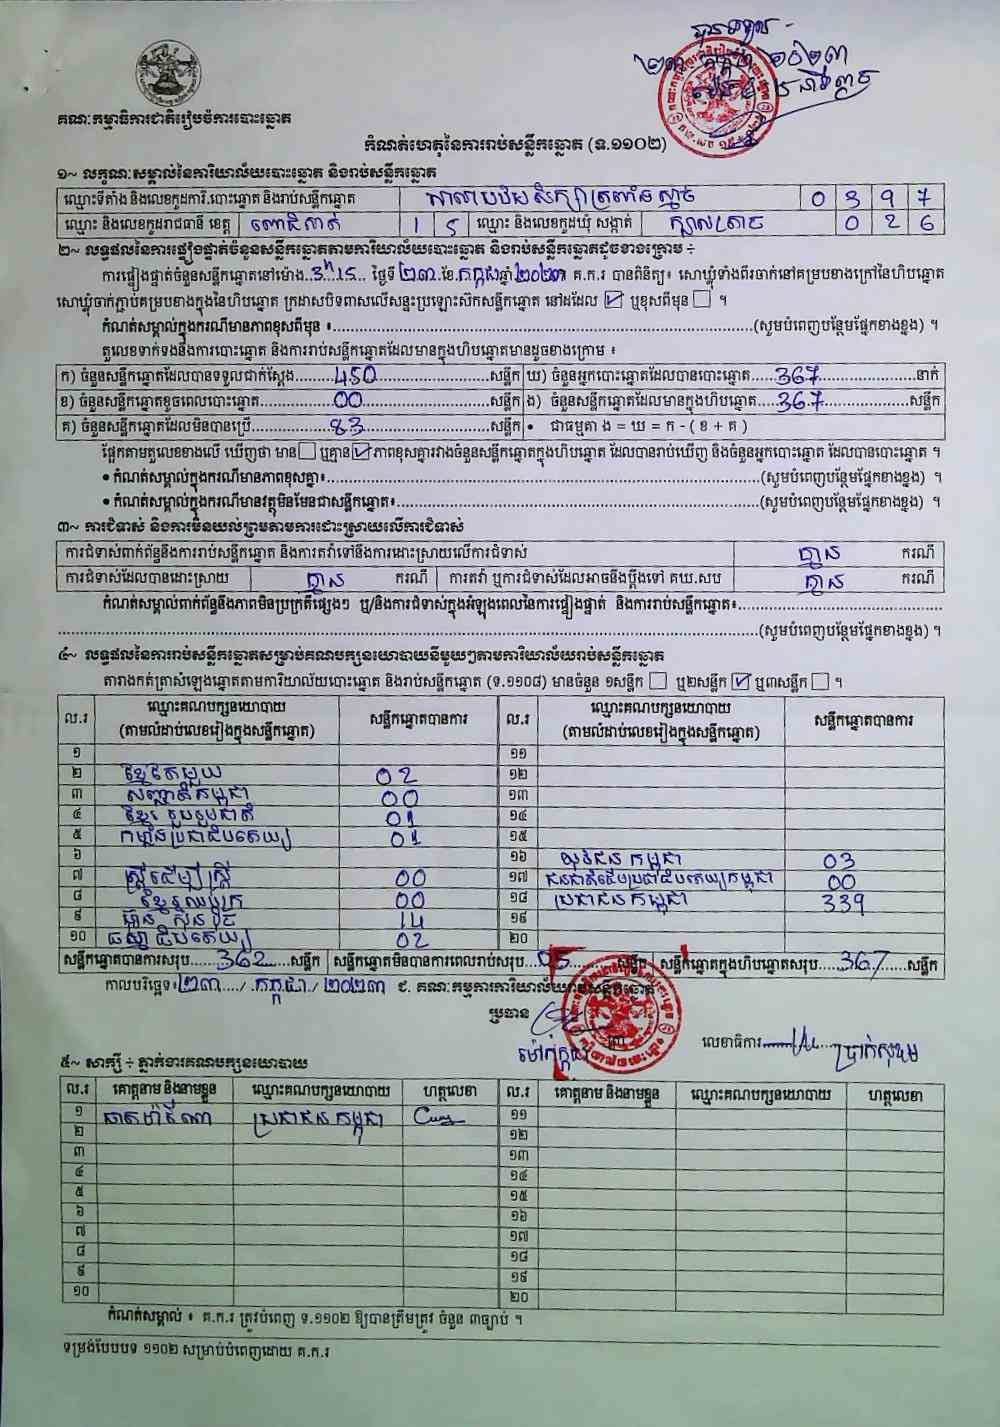 បានទទួល
២៣ កក្កដា ២០២៣
គណៈកម្មាធិការជាតិរៀបចំការបោះឆ្នោត
កំណត់ហេតុនៃការរាប់សន្លឹកឆ្នោត (ទ.១១០២)
១~ លក្ខណៈសម្គាល់នៃការិយាល័យបោះឆ្នោត និងរាប់សន្លឹកឆ្នោត
ឈ្មោះទីតាំង និងលេខកូដការិ.បោះឆ្នោត និងរាប់សន្លឹកឆ្នោត សាលាបឋមសិក្សាត្រពាំងស្មាច 0397
ឈ្មោះ និងលេខកូដរាជធានី ខេត្ត ពោធិ៍សាត់ 15 ឈ្មោះ និងលេខកូដឃុំ សង្កាត់ ក្បាលត្រាច 026
២~ លទ្ធផលនៃការផ្ទៀងផ្ទាត់ចំនួនសន្លឹកឆ្នោតតាមការិយាល័យបោះឆ្នោត និងរាប់សន្លឹកឆ្នោតដូចខាងក្រោម ÷
ការផ្ទៀងផ្ទាត់ចំនួនសន្លឹកឆ្នោតនៅម៉ោង 3h15 ថ្ងៃទី ២៣ ខែ កក្កដា ឆ្នាំ ២០២៣ គ.ក.រ បានពិនិត្យ៖ សោឃ្លុំទាំងពីរចាក់នៅគម្របខាងក្រៅនៃហិបឆ្នោត
សោឃ្លុំចាក់ភ្ជាប់គម្របខាងក្នុងនៃហិបឆ្នោត ក្រដាសបិទពាសលើសន្ទះប្រឡោះស៊កសន្លឹកឆ្នោត នៅដដែល ☑ ឬខុសពីមុន ☐ ។
កំណត់សម្គាល់ក្នុងករណីមានភាពខុសពីមុន ៖ (សូមបំពេញបន្ថែមផ្នែកខាងខ្នង) ។
តួលេខទាក់ទងនឹងការបោះឆ្នោត និងការរាប់សន្លឹកឆ្នោតដែលមានក្នុងហិបឆ្នោតមានដូចខាងក្រោម ៖
ក) ចំនួនសន្លឹកឆ្នោតដែលបានទទួលជាក់ស្តែង 450 សន្លឹក ឃ) ចំនួនអ្នកបោះឆ្នោតដែលបានបោះឆ្នោត 367 នាក់
ខ) ចំនួនសន្លឹកឆ្នោតខូចពេលបោះឆ្នោត 00 សន្លឹក ង) ចំនួនសន្លឹកឆ្នោតដែលមានក្នុងហិបឆ្នោត 367 សន្លឹក
គ) ចំនួនសន្លឹកឆ្នោតដែលមិនបានប្រើ 83 សន្លឹក • ជាធម្មតា ង = ឃ = ក - ( ខ + គ )
ផ្អែកតាមតួលេខខាងលើ ឃើញថា មាន ☐ ឬគ្មាន ☑ ភាពខុសគ្នារវាងចំនួនសន្លឹកឆ្នោតក្នុងហិបឆ្នោត ដែលបានរាប់ឃើញ និងចំនួនអ្នកបោះឆ្នោត ដែលបានបោះឆ្នោត ។
• កំណត់សម្គាល់ក្នុងករណីមានភាពខុសគ្នា៖ (សូមបំពេញបន្ថែមផ្នែកខាងខ្នង) ។
• កំណត់សម្គាល់ក្នុងករណីមានវត្ថុមិនមែនជាសន្លឹកឆ្នោត៖ (សូមបំពេញបន្ថែមផ្នែកខាងខ្នង) ។
៣~ ការជំទាស់ និងការមិនយល់ព្រមតាមការដោះស្រាយលើការជំទាស់
ការជំទាស់ពាក់ព័ន្ធនឹងការរាប់សន្លឹកឆ្នោត និងការតវ៉ាទៅនឹងការដោះស្រាយលើការជំទាស់ គ្មាន ករណី
ការជំទាស់ដែលបានដោះស្រាយ គ្មាន ករណី ការតវ៉ា ឬការជំទាស់ដែលអាចនឹងប្តឹងទៅ គឃ.សប គ្មាន ករណី
កំណត់សម្គាល់ពាក់ព័ន្ធនឹងភាពមិនប្រក្រតីផ្សេងៗ ឬ/និងការជំទាស់ក្នុងអំឡុងពេលនៃការផ្ទៀងផ្ទាត់ និងការរាប់សន្លឹកឆ្នោត៖
(សូមបំពេញបន្ថែមផ្នែកខាងខ្នង) ។
៤~ លទ្ធផលនៃការរាប់សន្លឹកឆ្នោតសម្រាប់គណបក្សនយោបាយនីមួយៗតាមការិយាល័យរាប់សន្លឹកឆ្នោត
តារាងកត់ត្រាសំឡេងឆ្នោតតាមការិយាល័យបោះឆ្នោត និងរាប់សន្លឹកឆ្នោត (ទ.១១០៨) មានចំនួន ១សន្លឹក ☐ ឬ២សន្លឹក ☑ ឬ៣សន្លឹក ☐ ។
ល.រ ឈ្មោះគណបក្សនយោបាយ (តាមលំដាប់លេខរៀងក្នុងសន្លឹកឆ្នោត) សន្លឹកឆ្នោតបានការ ល.រ ឈ្មោះគណបក្សនយោបាយ (តាមលំដាប់លេខរៀងក្នុងសន្លឹកឆ្នោត) សន្លឹកឆ្នោតបានការ
១ ១១
២ ខ្មែរតែមួយ 02 ១២
៣ សញ្ជាតិកម្ពុជា 00 ១៣
៤ ខ្មែររួបរួមជាតិ 01 ១៤
៥ កម្លាំងប្រជាធិបតេយ្យ 01 ១៥
៦ ១៦ យុវជនកម្ពុជា 03
៧ ស្ត្រីដើម្បីស្ត្រី 00 ១៧ ជនជាតិដើមប្រជាធិបតេយ្យកម្ពុជា 00
៨ ខ្មែរឈប់ក្រ 00 ១៨ ប្រជាជនកម្ពុជា 339
៩ ហ្វ៊ុនស៊ិនប៉ិច 14 ១៩
១០ ធម្មាធិបតេយ្យ 02 ២០
សន្លឹកឆ្នោតបានការសរុប 362 សន្លឹក សន្លឹកឆ្នោតមិនបានការពេលរាប់សរុប 05 សន្លឹក សន្លឹកឆ្នោតក្នុងហិបឆ្នោតសរុប 367 សន្លឹក
កាលបរិច្ឆេទ៖ ២៣ / កក្កដា / ២០២៣ ជ. គណៈកម្មការការិយាល័យរាប់សន្លឹកឆ្នោត
ប្រធាន
លេខាធិការ
៥~ សាក្សី ÷ ភ្នាក់ងារគណបក្សនយោបាយ
ល.រ គោត្តនាម និងនាមខ្លួន ឈ្មោះគណបក្សនយោបាយ ហត្ថលេខា ល.រ គោត្តនាម និងនាមខ្លួន ឈ្មោះគណបក្សនយោបាយ ហត្ថលេខា
១ ប្រជាជនកម្ពុជា ១១
២ ១២
៣ ១៣
៤ ១៤
៥ ១៥
៦ ១៦
៧ ១៧
៨ ១៨
៩ ១៩
១០ ២០
កំណត់សម្គាល់ ៖ គ.ក.រ ត្រូវបំពេញ ទ.១១០២ ឱ្យបានត្រឹមត្រូវ ចំនួន ៣ច្បាប់ ។
ទម្រង់បែបបទ ១១០២ សម្រាប់បំពេញដោយ គ.ក.រ